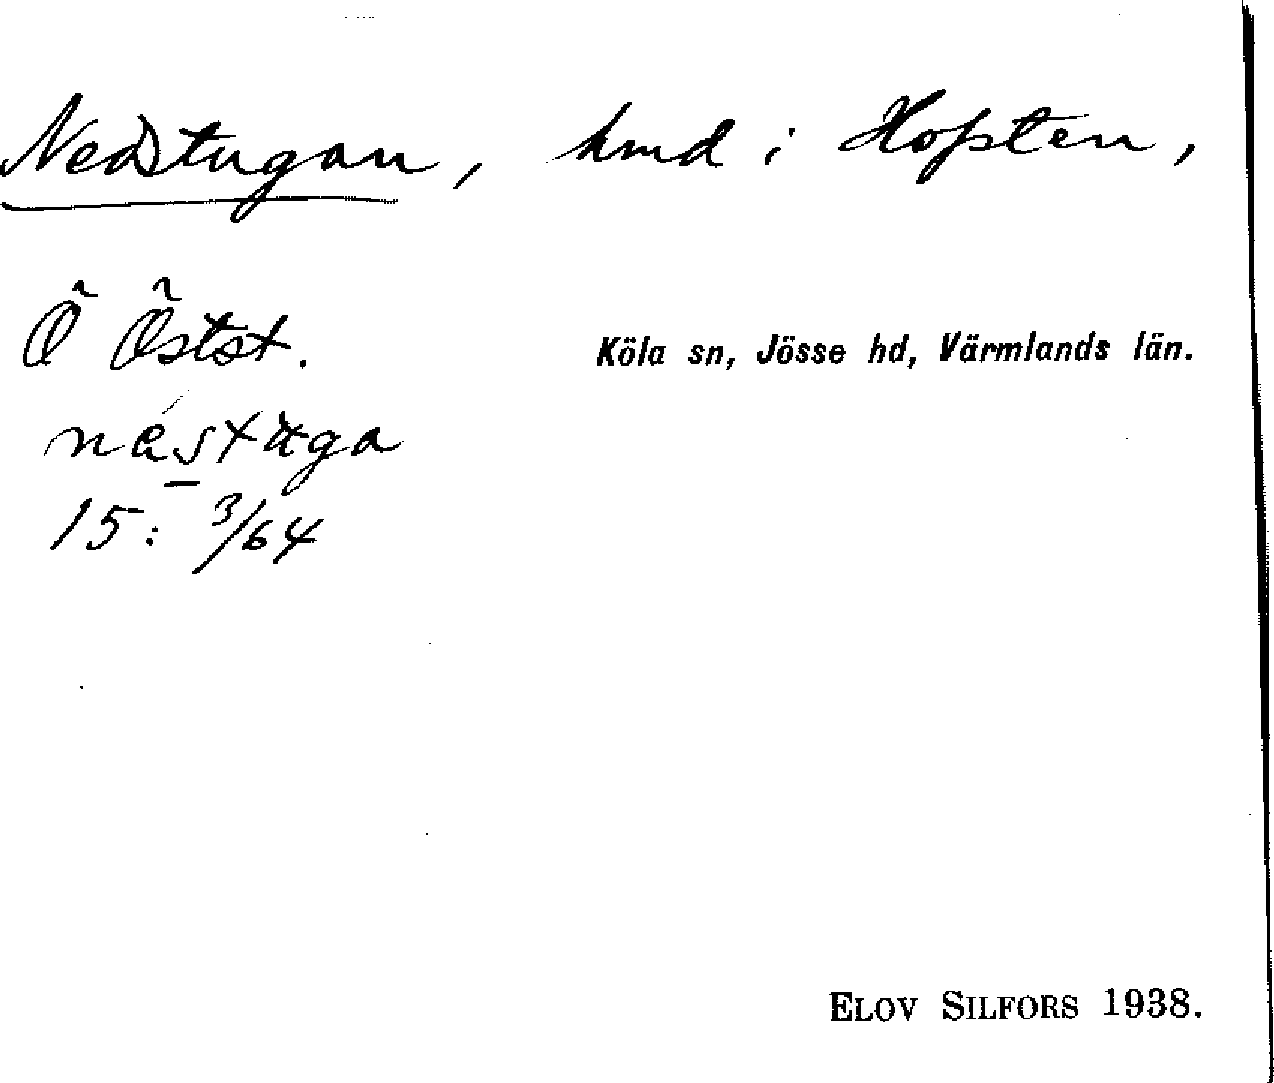 Nedstugan, hmd i Hopsten,
Ö Östst. Köla sn, Jösse hd, Värmlands län.
néstùga
15: 3/64
ELOV SILFORS 1938.